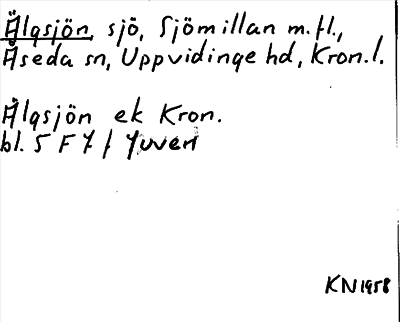 Älgsjön, sjö, Sjömillan m.fl.,
Åseda sn, Uppvidinge hd, Kron.l.
Älgsjön ek Kron.
bl. 5 F 7 f
KN 1958